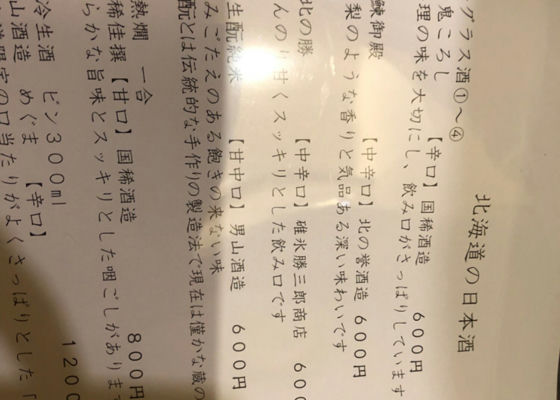 北海道の日本酒
グラス酒①～④
鬼ころし 【辛口】国稀酒造 600円
理の味を大切にし、飲み口がさっぱりしています
鰊御殿 【中辛口】北の誉酒造 600円
梨のような香りと気品ある深い味わいです
北の勝 【中辛口】碓氷勝三郎商店 600
んのり甘くスッキリとした飲み口です
生酛純米 【甘中口】男山酒造 600円
みごたえのある飽きの来ない味
酛とは伝統的な手作りの製造法で現在は僅かな蔵の
熱燗 一合
稀佳撰【甘口】国稀酒造 800円
らかな旨味とスッキリとした咽ごしがあります
冷生酒 ビン300ml
めぐま 【辛口】 1200
山酒造
の口当たりがよくさっぱりとした「